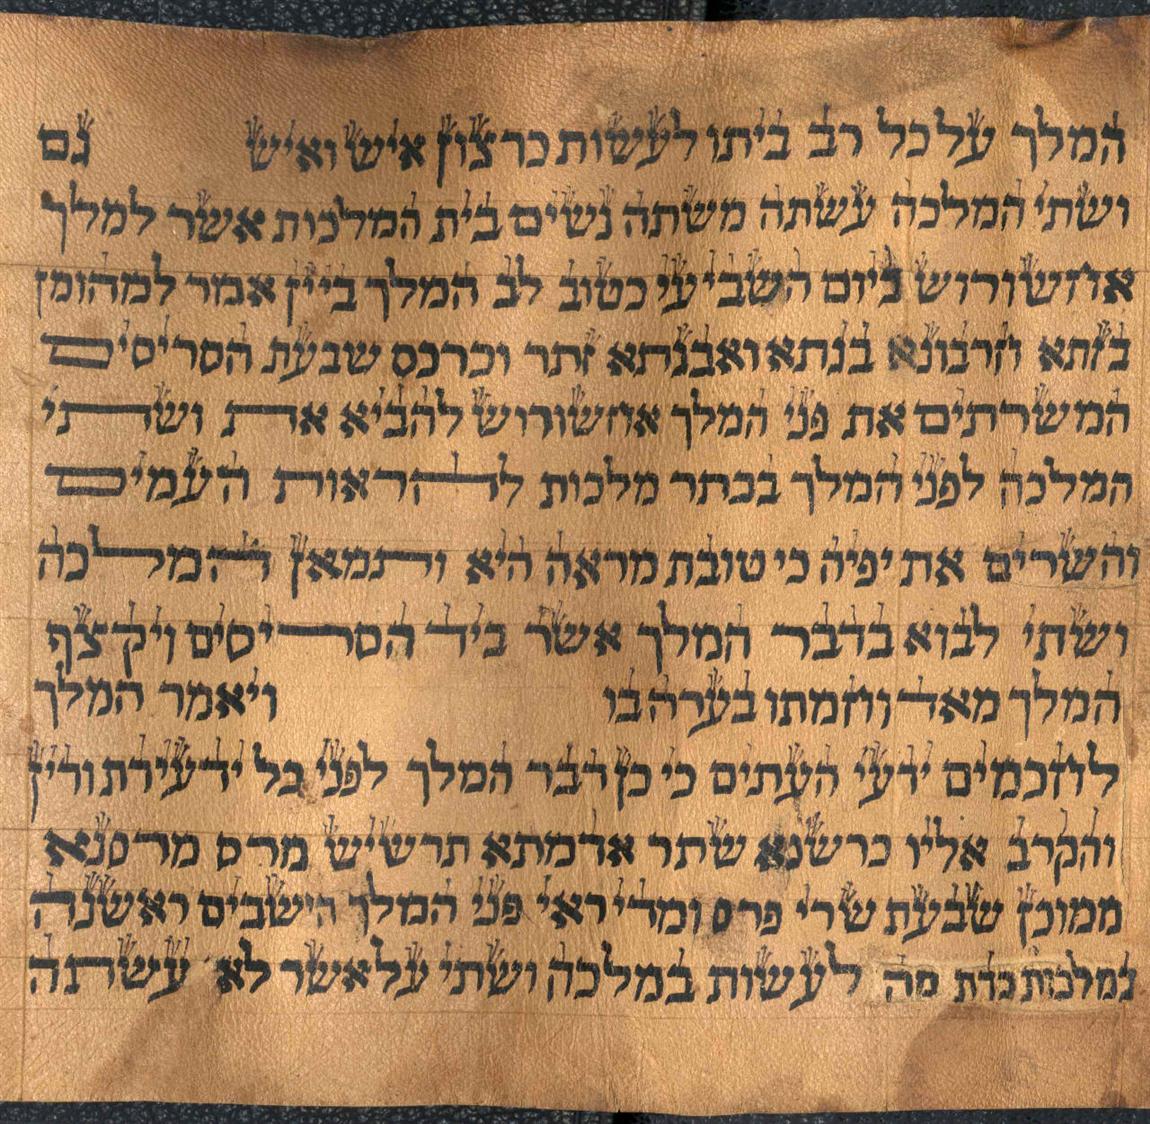 המלך על כל רב ביתו לעשות כרצון איש ואיש גם
ושתי המלכה עשתה משתה נשים בית המלכות אשר למלך
אחשורוש ביום השביעי כטוב לב המלך ביין אמר למהומן
בזתא חרבונא בגתא ואבגתא זתר וכרכס שבעת הסריסים
המשרתים את פני המלך אחשורוש להביא את ושתי
המלכה לפני המלך בכתר מלכות להראות העמים
והשרים את יפיה כי טובת מראה היא ותמאן המלכה
ושתי לבוא בדבר המלך אשר ביד הסריסים ויקצף
המלך מאד וחמתו בערה בו ויאמר המלך
לחכמים ידעי העתים כי כן דבר המלך לפני כל ידעי דת ודין
והקרב אליו כרשנא שתר אדמתא תרשיש מרס מרסנא
ממוכן שבעת שרי פרס ומדי ראי פני המלך הישבים ראשנה
במלכות כדת מה לעשות במלכה ושתי על אשר לא עשתה